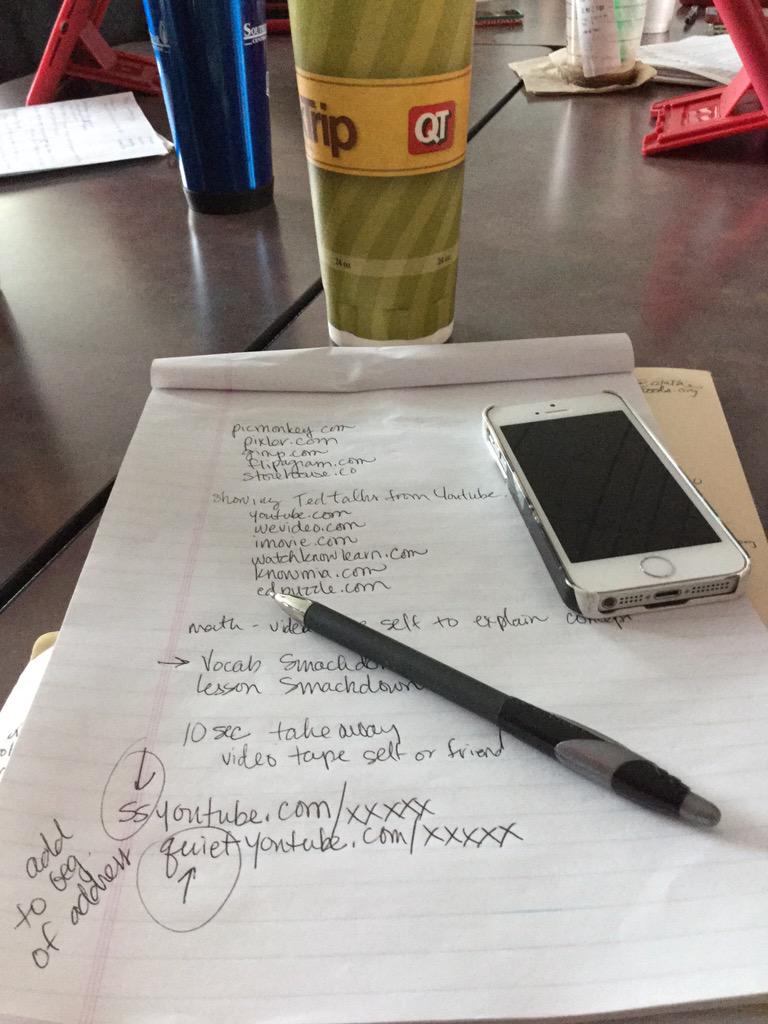 Trip QT
24 oz
24 oz
picmonkey.com
pixlor.com
gimp.com
flipagram.com
storehouse.co
Showing Ted talks from Youtube.
youtube.com
wevideo.com
imovie.com
watchknowlearn.com
knowmia.com
edpuzzle.com
math - self to explain
→ Vocab
lesson Smackdown
10 sec take away
video tape self or friend
ssyoutube.com/xxxxx
quietyoutube.com/xxxxx
add
to beg.
of address